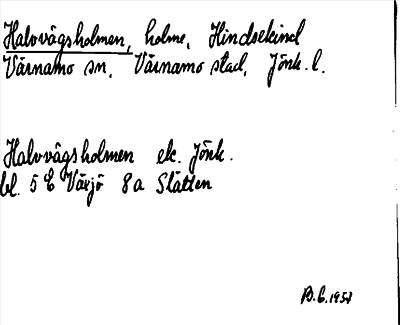 Halvvägsholmen, holme, Hindsekind
Värnamo sn, Värnamo stad, Jönk. l.
Halvvägsholmen ek. Jönk.
bl. 5 E Växjö 8a Slätten
B.G. 1957